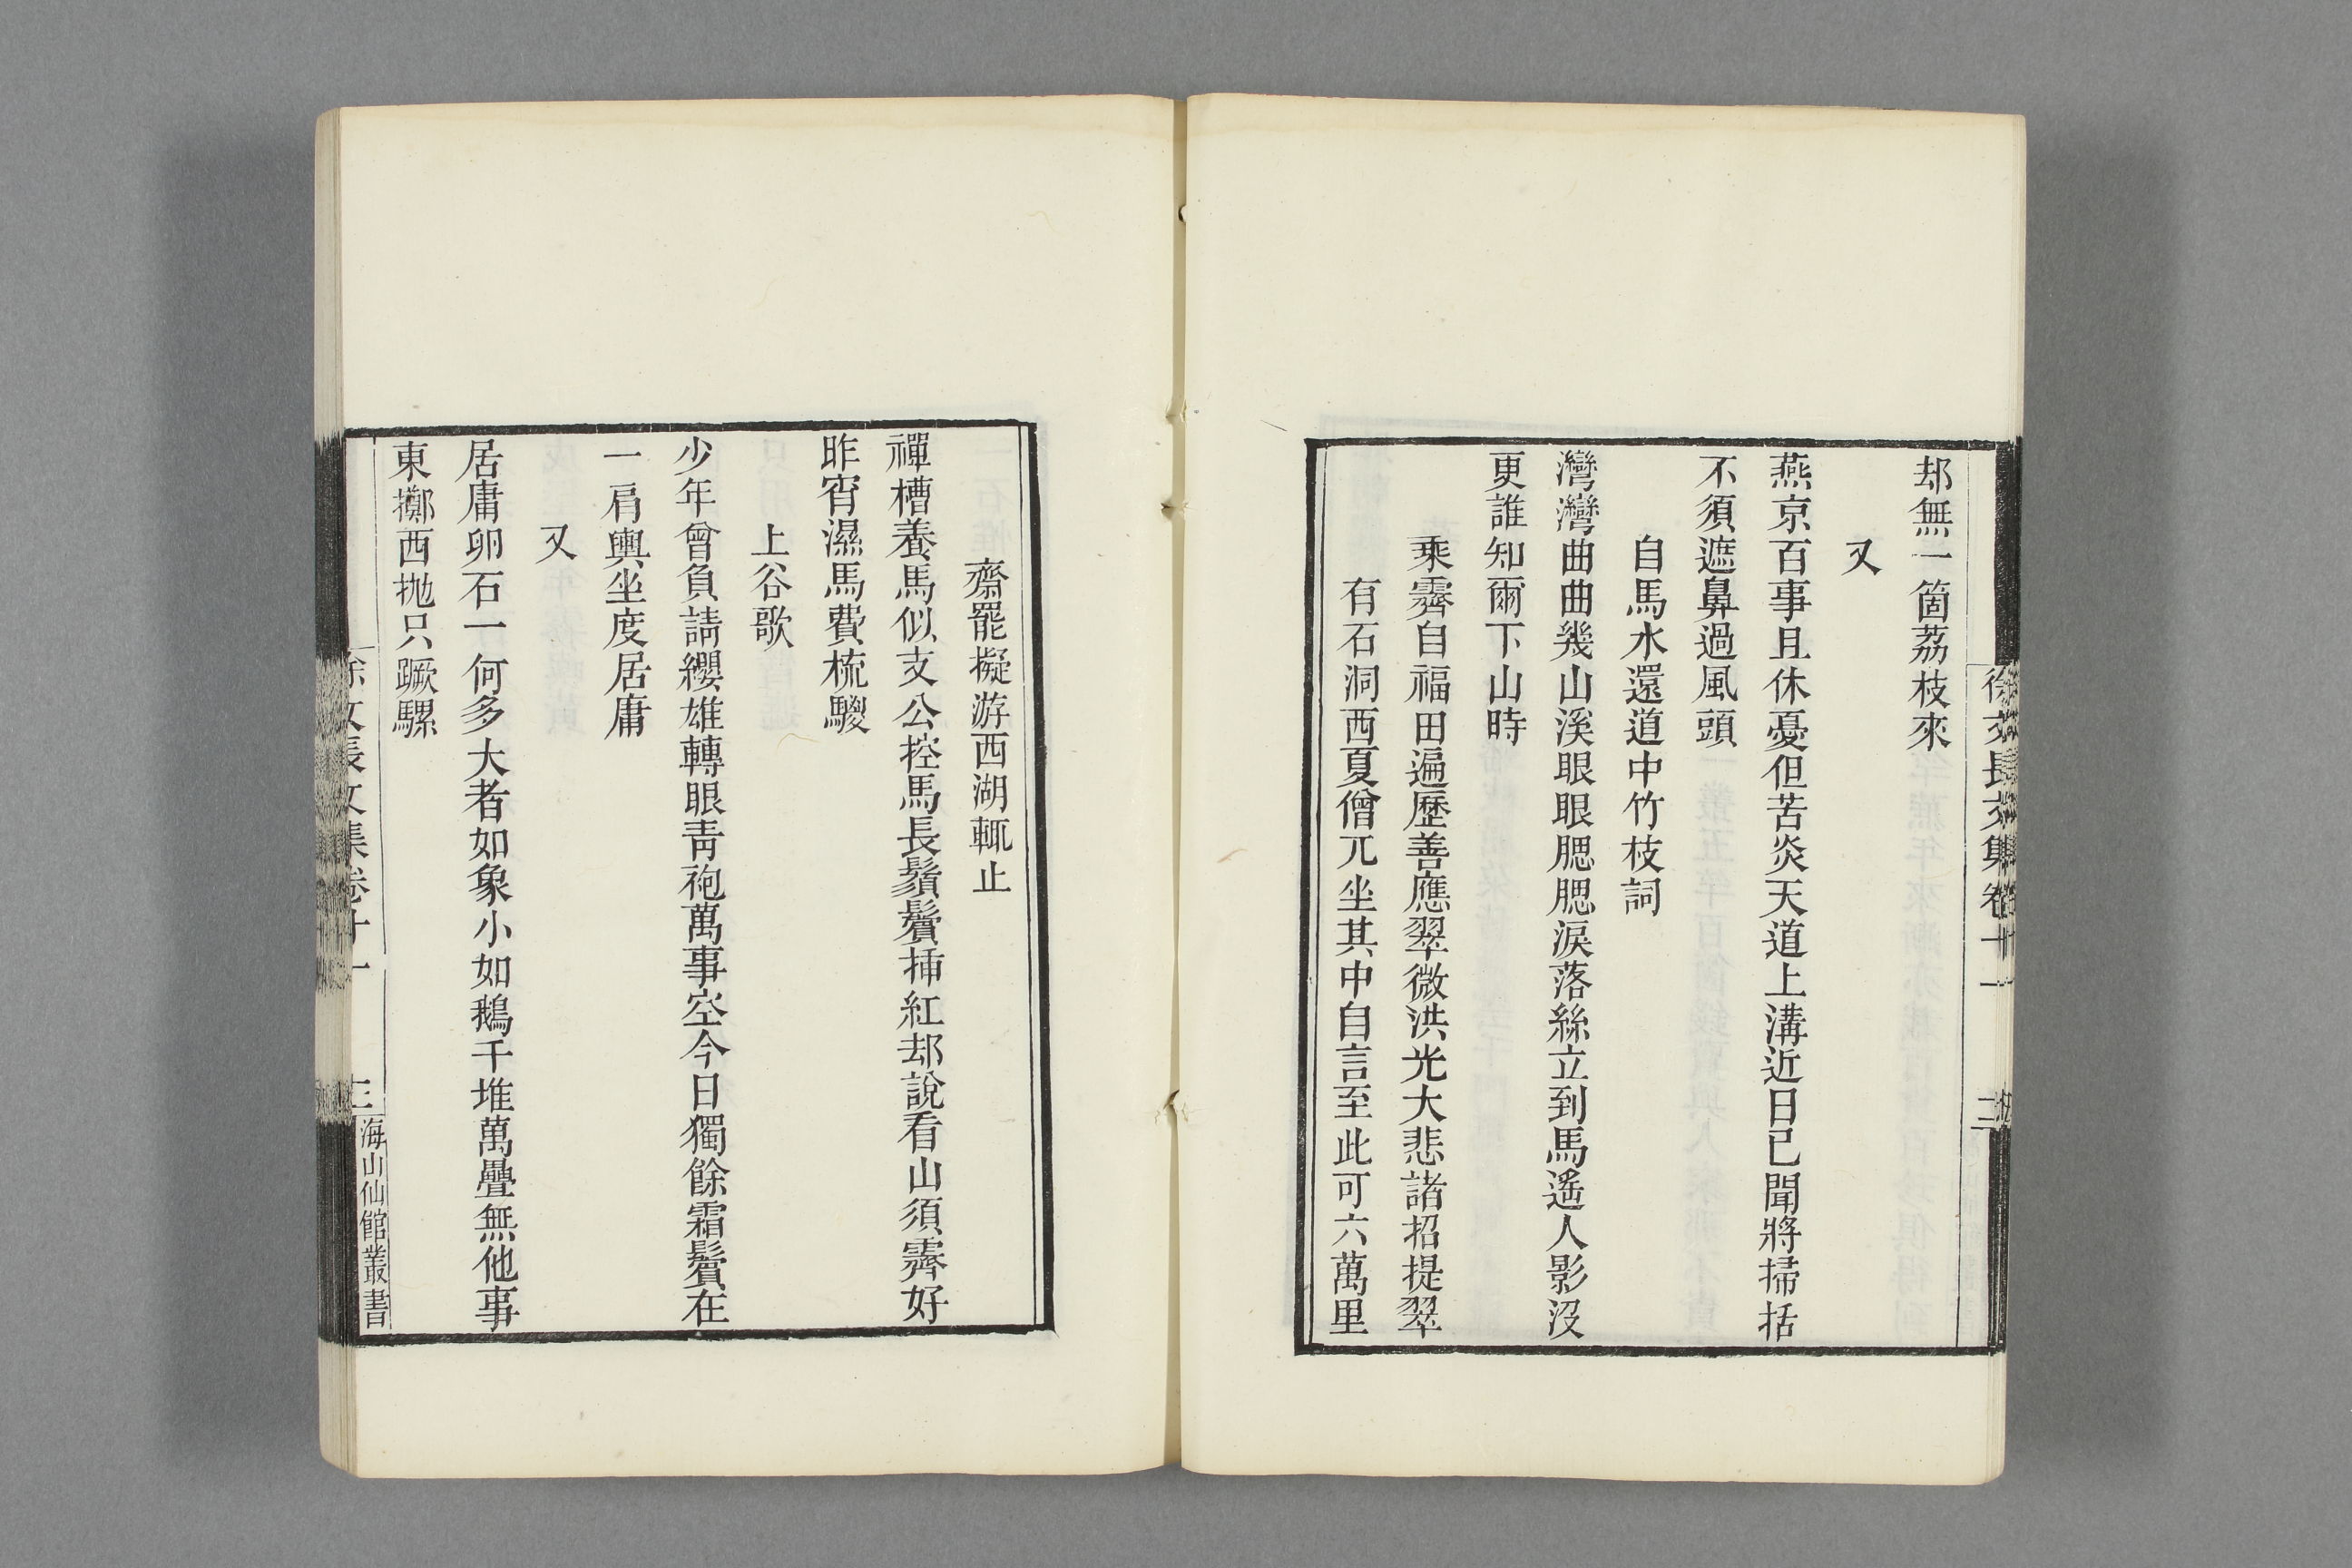 徐文長文集卷十一
二
却無一箇荔枝來
又
燕京百事且休憂但苦炎天道上溝近日已聞將掃括
不須遮鼻過風頭
自馬水還道中竹枝詞
灣灣曲曲幾山溪眼眼腮腮淚落絲立到馬遙人影沒
更誰知爾下山時
乘霽自福田遍歷善應翠微洪光大悲諸招提翠
有石洞西夏僧兀坐其中自言至此可六萬里
齋罷擬游西湖輒止
禪槽養馬似支公控馬長鬚鬢揷紅却說看山須霽好
昨宵濕馬費梳騣
上谷歌
少年曾負請纓雄轉眼青袍萬事空今日獨餘霜鬢在
一肩輿坐度居庸
又
居庸卵石一何多大者如象小如鵝千堆萬疊無他事
東擲西拋只蹶騾
徐文長文集卷十一
三
海山仙館叢書